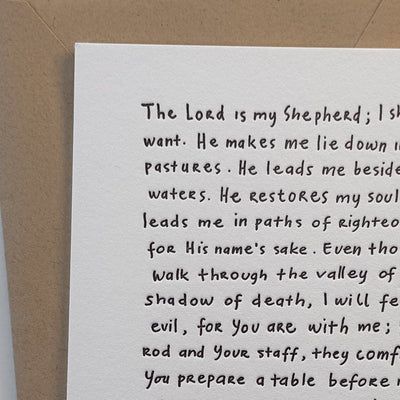 The Lord is my Shepherd; I
want. He makes me lie down
pastures. He leads me beside
waters. He restores my soul
leads me in paths of
for His name's sake. Even
walk through the valley of
shadow of death, I will
evil, for You are with me;
rod and Your staff, they
You prepare a table before